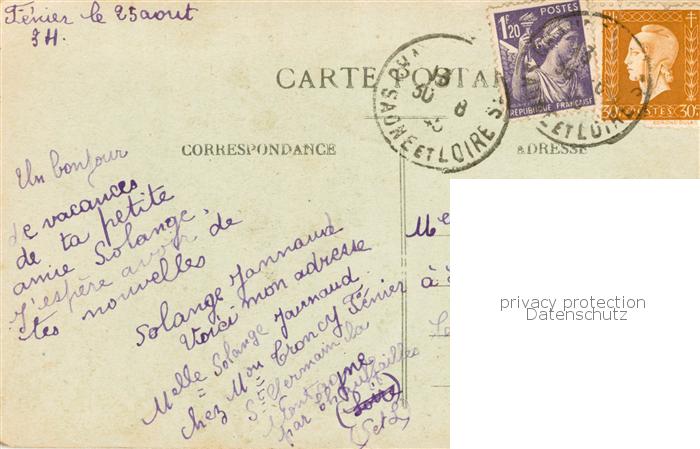 Fénier le 25 août
34.
CARTE POSTAL
1F20 POSTES
RÉPUBLIQUE FRANÇAISE
30c POSTES 30c
SAONE ET LOIRE
30 8
ET LOIRE
CORRESPONDANCE
ADRESSE
Un bonjour
de vacances
de ta petite
amie Solange.
J'espère avoir de
tes nouvelles
Solange Jannaud
Voici mon adresse
Melle Solange Jannaud
chez Mou Croncy Fénier
St Germain la
Montagne
par chauffailles
(Loire)
(S et L)
Me
à
privacy protection
Datenschutz